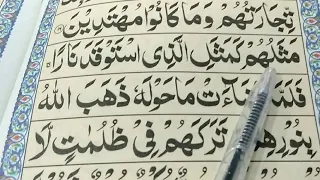 تِّجَارَتُهُمْ وَمَا كَانُوْا مُهْتَدِيْنَ
مَثَلُهُمْ كَمَثَلِ الَّذِى اسْتَوْقَدَ نَارًا
اَضَآءَتْ مَا حَوْلَهٗ ذَهَبَ اللّٰهُ
بِنُوْرِهِمْ تَرَكَهُمْ فِىْ ظُلُمٰتٍ لَّا